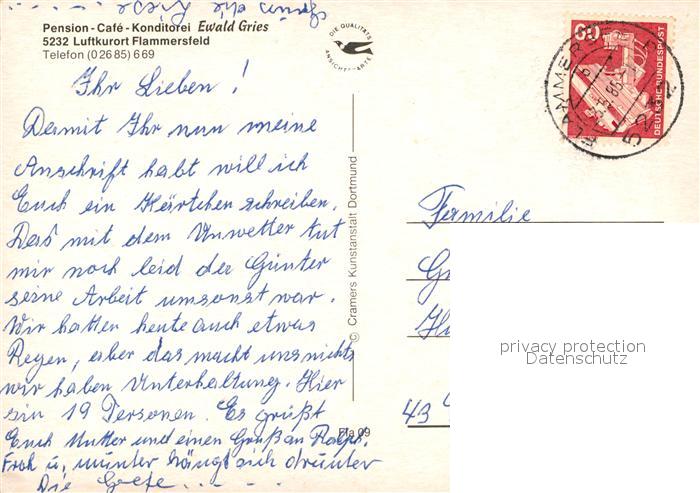 Pension - Café - Konditorei Ewald Gries
5232 Luftkurort Flammersfeld
Telefon (02685) 669
DIE QUALITÄTS
ANSICHTSKARTE
60
DEUTSCHE BUNDESPOST
FLAMMERSF
Ihr Lieben!
Damit Ihr nun meine
Anschrift habt will ich
Euch ein Kärtchen schreiben.
Das mit dem Unwetter tut
mir noch leid der Günter
seine Arbeit umsonst war.
Wir hatten heute auch etwas
Regen, aber das macht uns nichts
wir haben Unterhaltung. Hier
sin 19 Personen. Es grüßt
Euch Mutter und einen Gruß an Ralph.
Froh u, munter hängt sich drunter
Die
© Cramers Kunstanstalt Dortmund
Fla 09
Familie
G
43
privacy protection
Datenschutz